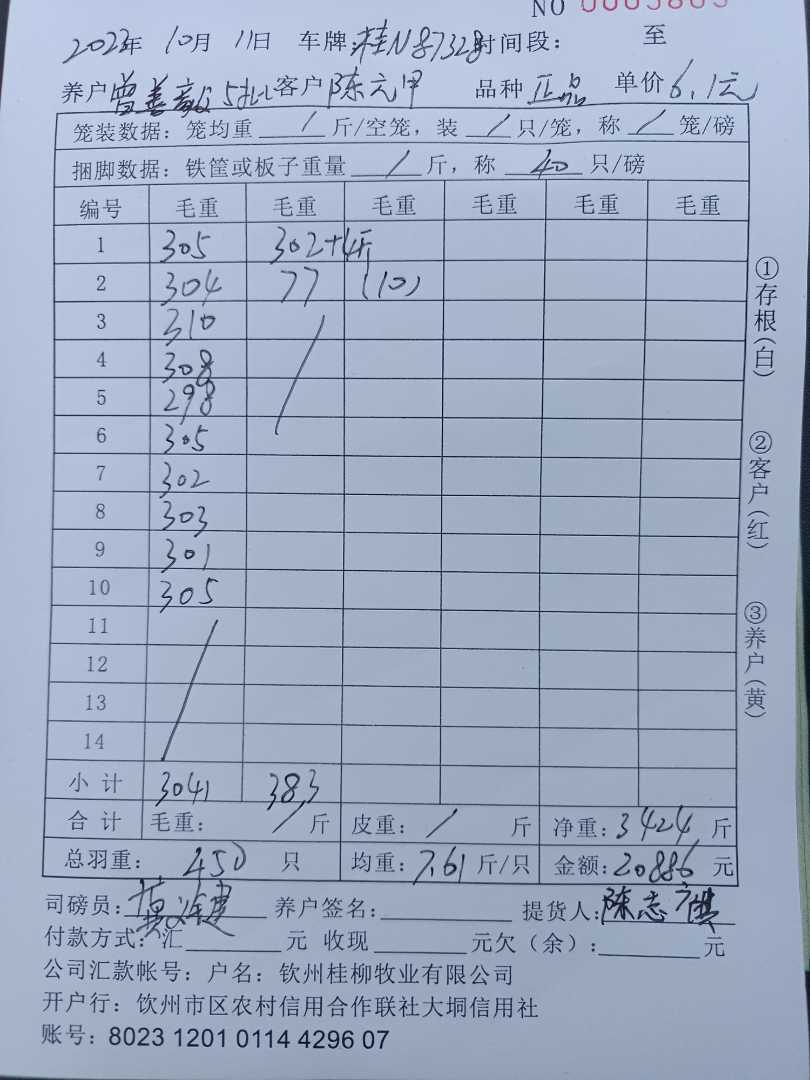 NO 0005805
2023年 10月 11日 车牌:桂N87328时间段: 至
养户 曾善 客户 陈元甲 品种 正品 单价 6.1元
笼装数据:笼均重 / 斤/空笼,装 / 只/笼,称 / 笼/磅
捆脚数据:铁筐或板子重量 / 斤,称 40 只/磅
编号 毛重 毛重 毛重 毛重 毛重 毛重
1 305 302+4斤
2 304 77 (10)
3 310
4 308
5 298
6 305
7 302
8 303
9 301
10 305
11
12
13
14
小计 3041 383
合计 毛重: / 斤 皮重: / 斤 净重:3424 斤
总羽重: 450 只 均重:7.61斤/只 金额:20886 元
司磅员: 养户签名: 提货人:陈志
付款方式:汇 元 收现 元欠(余): 元
公司汇款帐号:户名:钦州桂柳牧业有限公司
开户行:钦州市区农村信用合作联社大垌信用社
账号:8023 1201 0114 4296 07
①存根(白)
②客户(红)
③养户(黄)